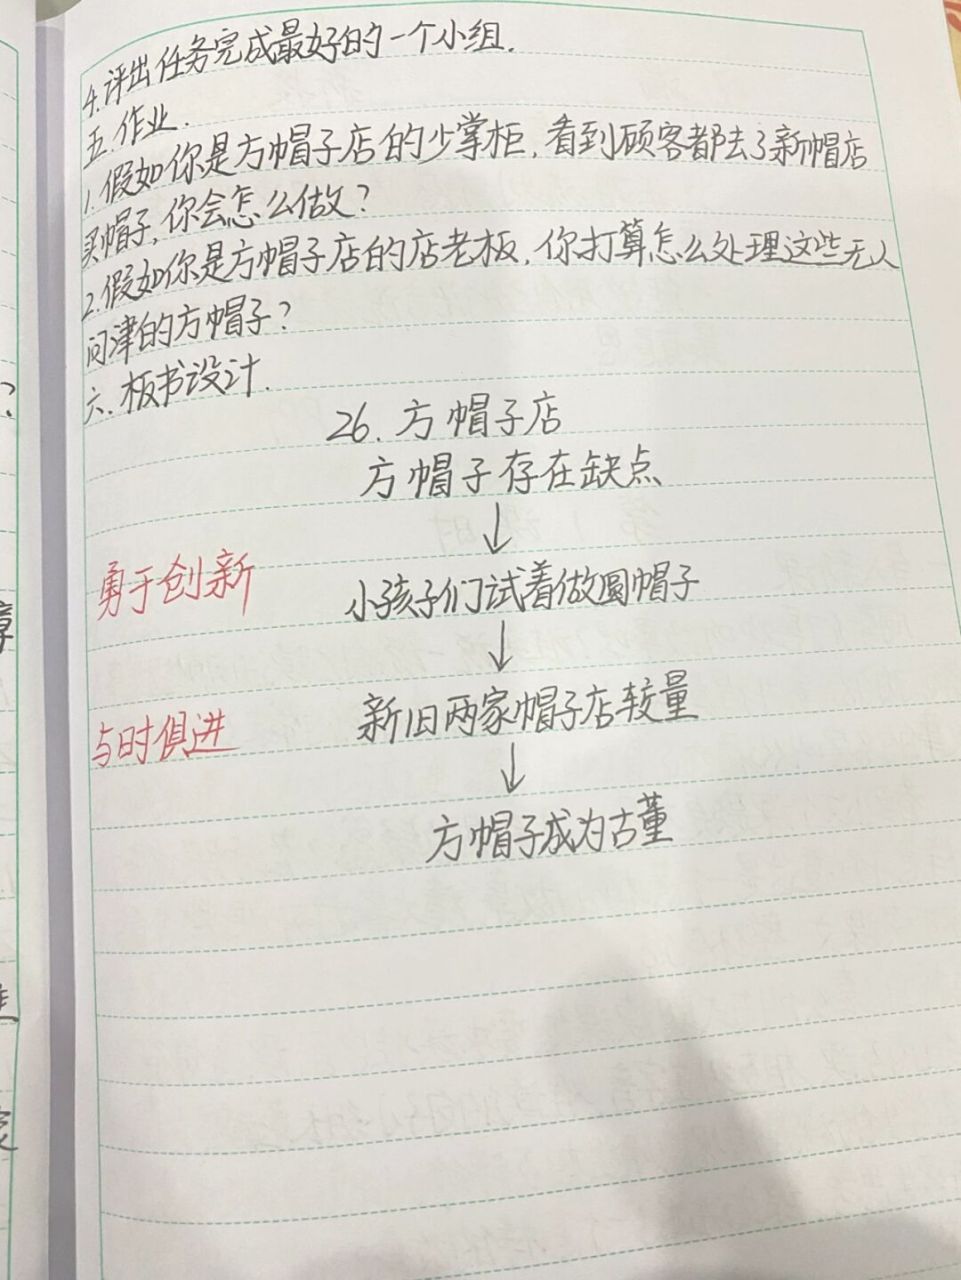 4.评出任务完成最好的一个小组.
五.作业.
1.假如你是方帽子店的少掌柜,看到顾客都去了新帽店
买帽子,你会怎么做?
2.假如你是方帽子店的店老板,你打算怎么处理这些无人
问津的方帽子?
六.板书设计.
26.方帽子店
方帽子存在缺点
↓
勇于创新 小孩子们试着做圆帽子
↓
与时俱进 新旧两家帽子店较量
↓
方帽子成为古董